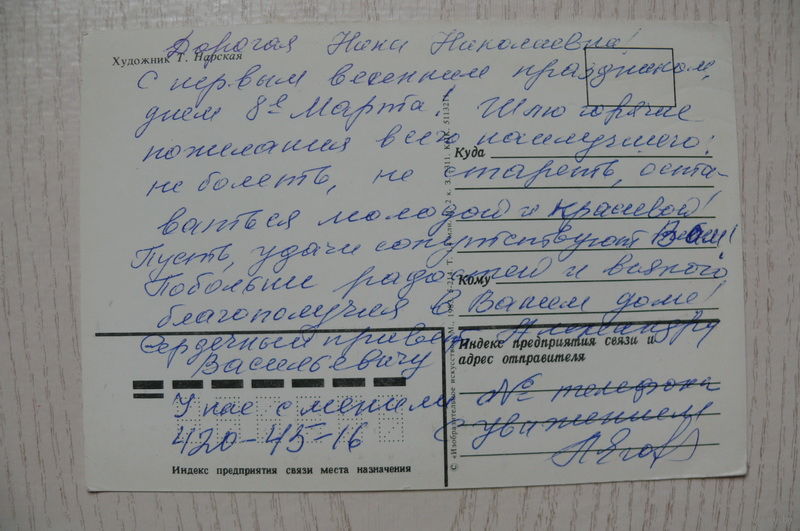 Художник Т. Нарская
Дорогая Нина Николаевна!
С первым весенним праздником,
днём 8е Марта! Шлю горячие
пожелания всего наилучшего:
не болеть, не стареть, оста-
ваться молодой и красивой!
Пусть удачи сопутствуют Вам!
Побольше радостей и всякого
благополучия в Вашем доме!
Сердечный привет Александру
Васильевичу
У нас сменили № телефона
420-45-16
С уважением
Куда
Кому
Индекс предприятия связи и
адрес отправителя
Индекс предприятия связи места назначения
© «Изобразительное искусство».